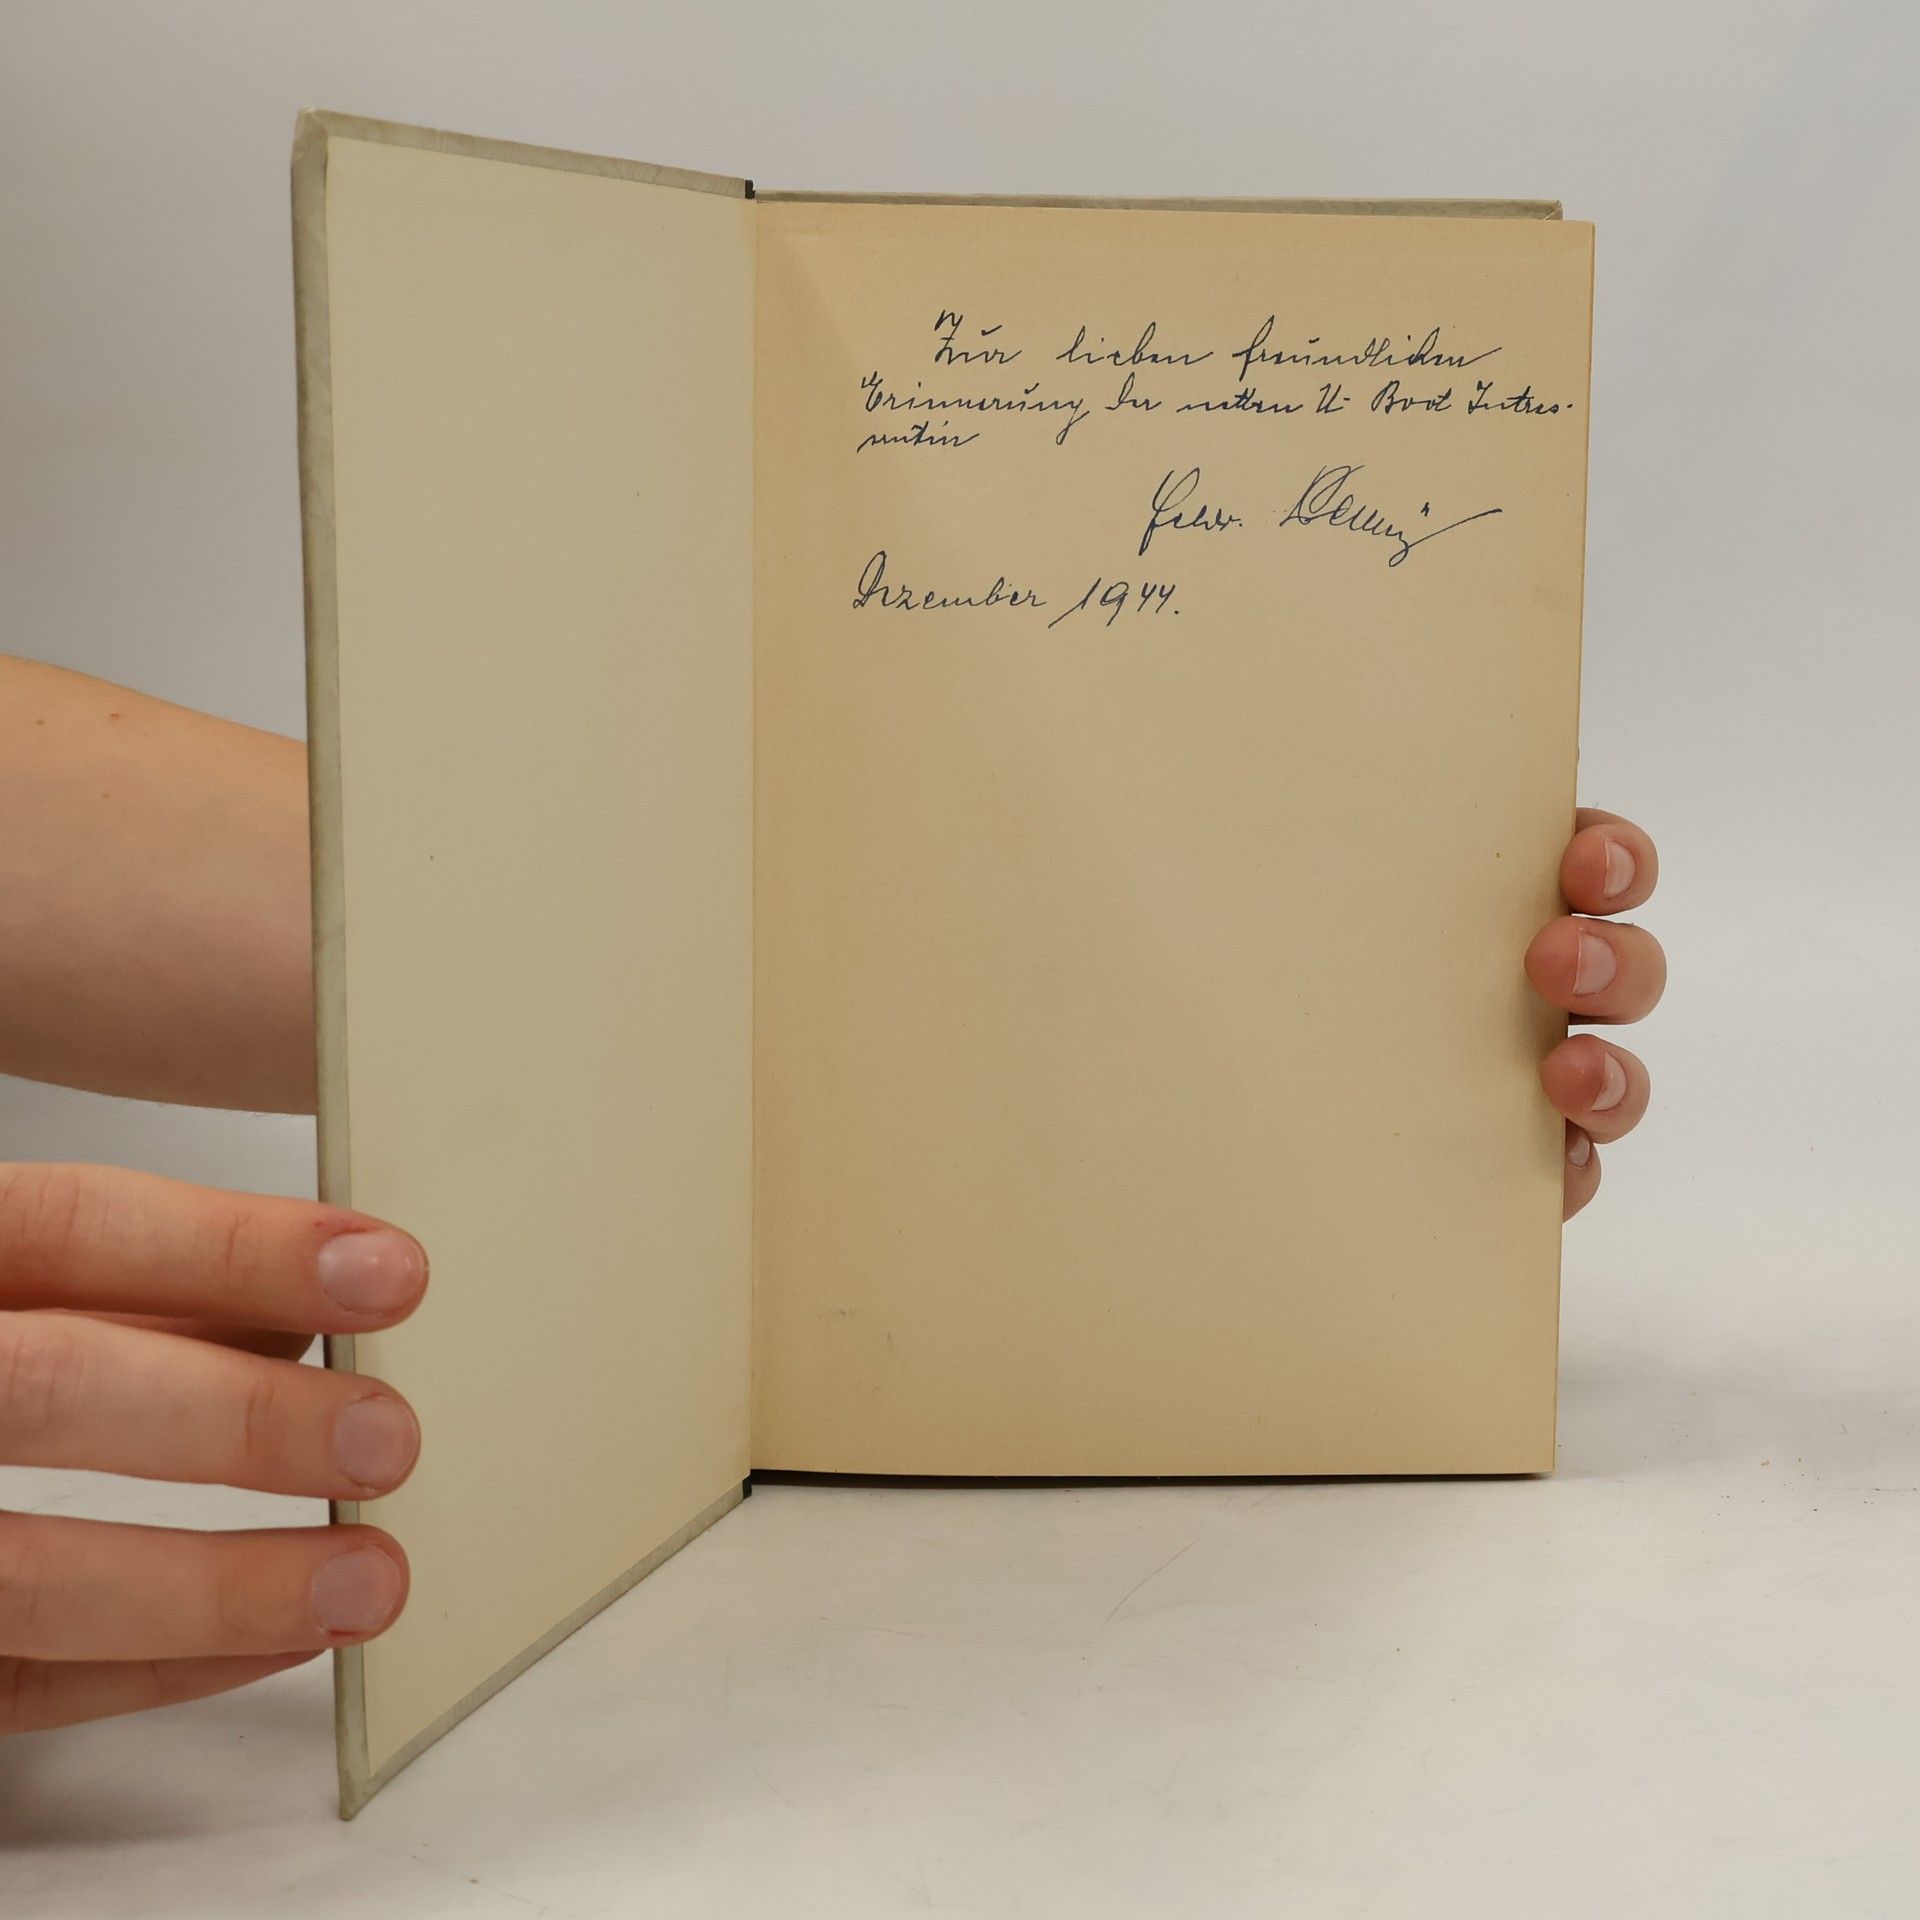 Zur lieben freundlichen
Erinnerung der netten U-Boot Intres-
sentin
Dezember 1944.